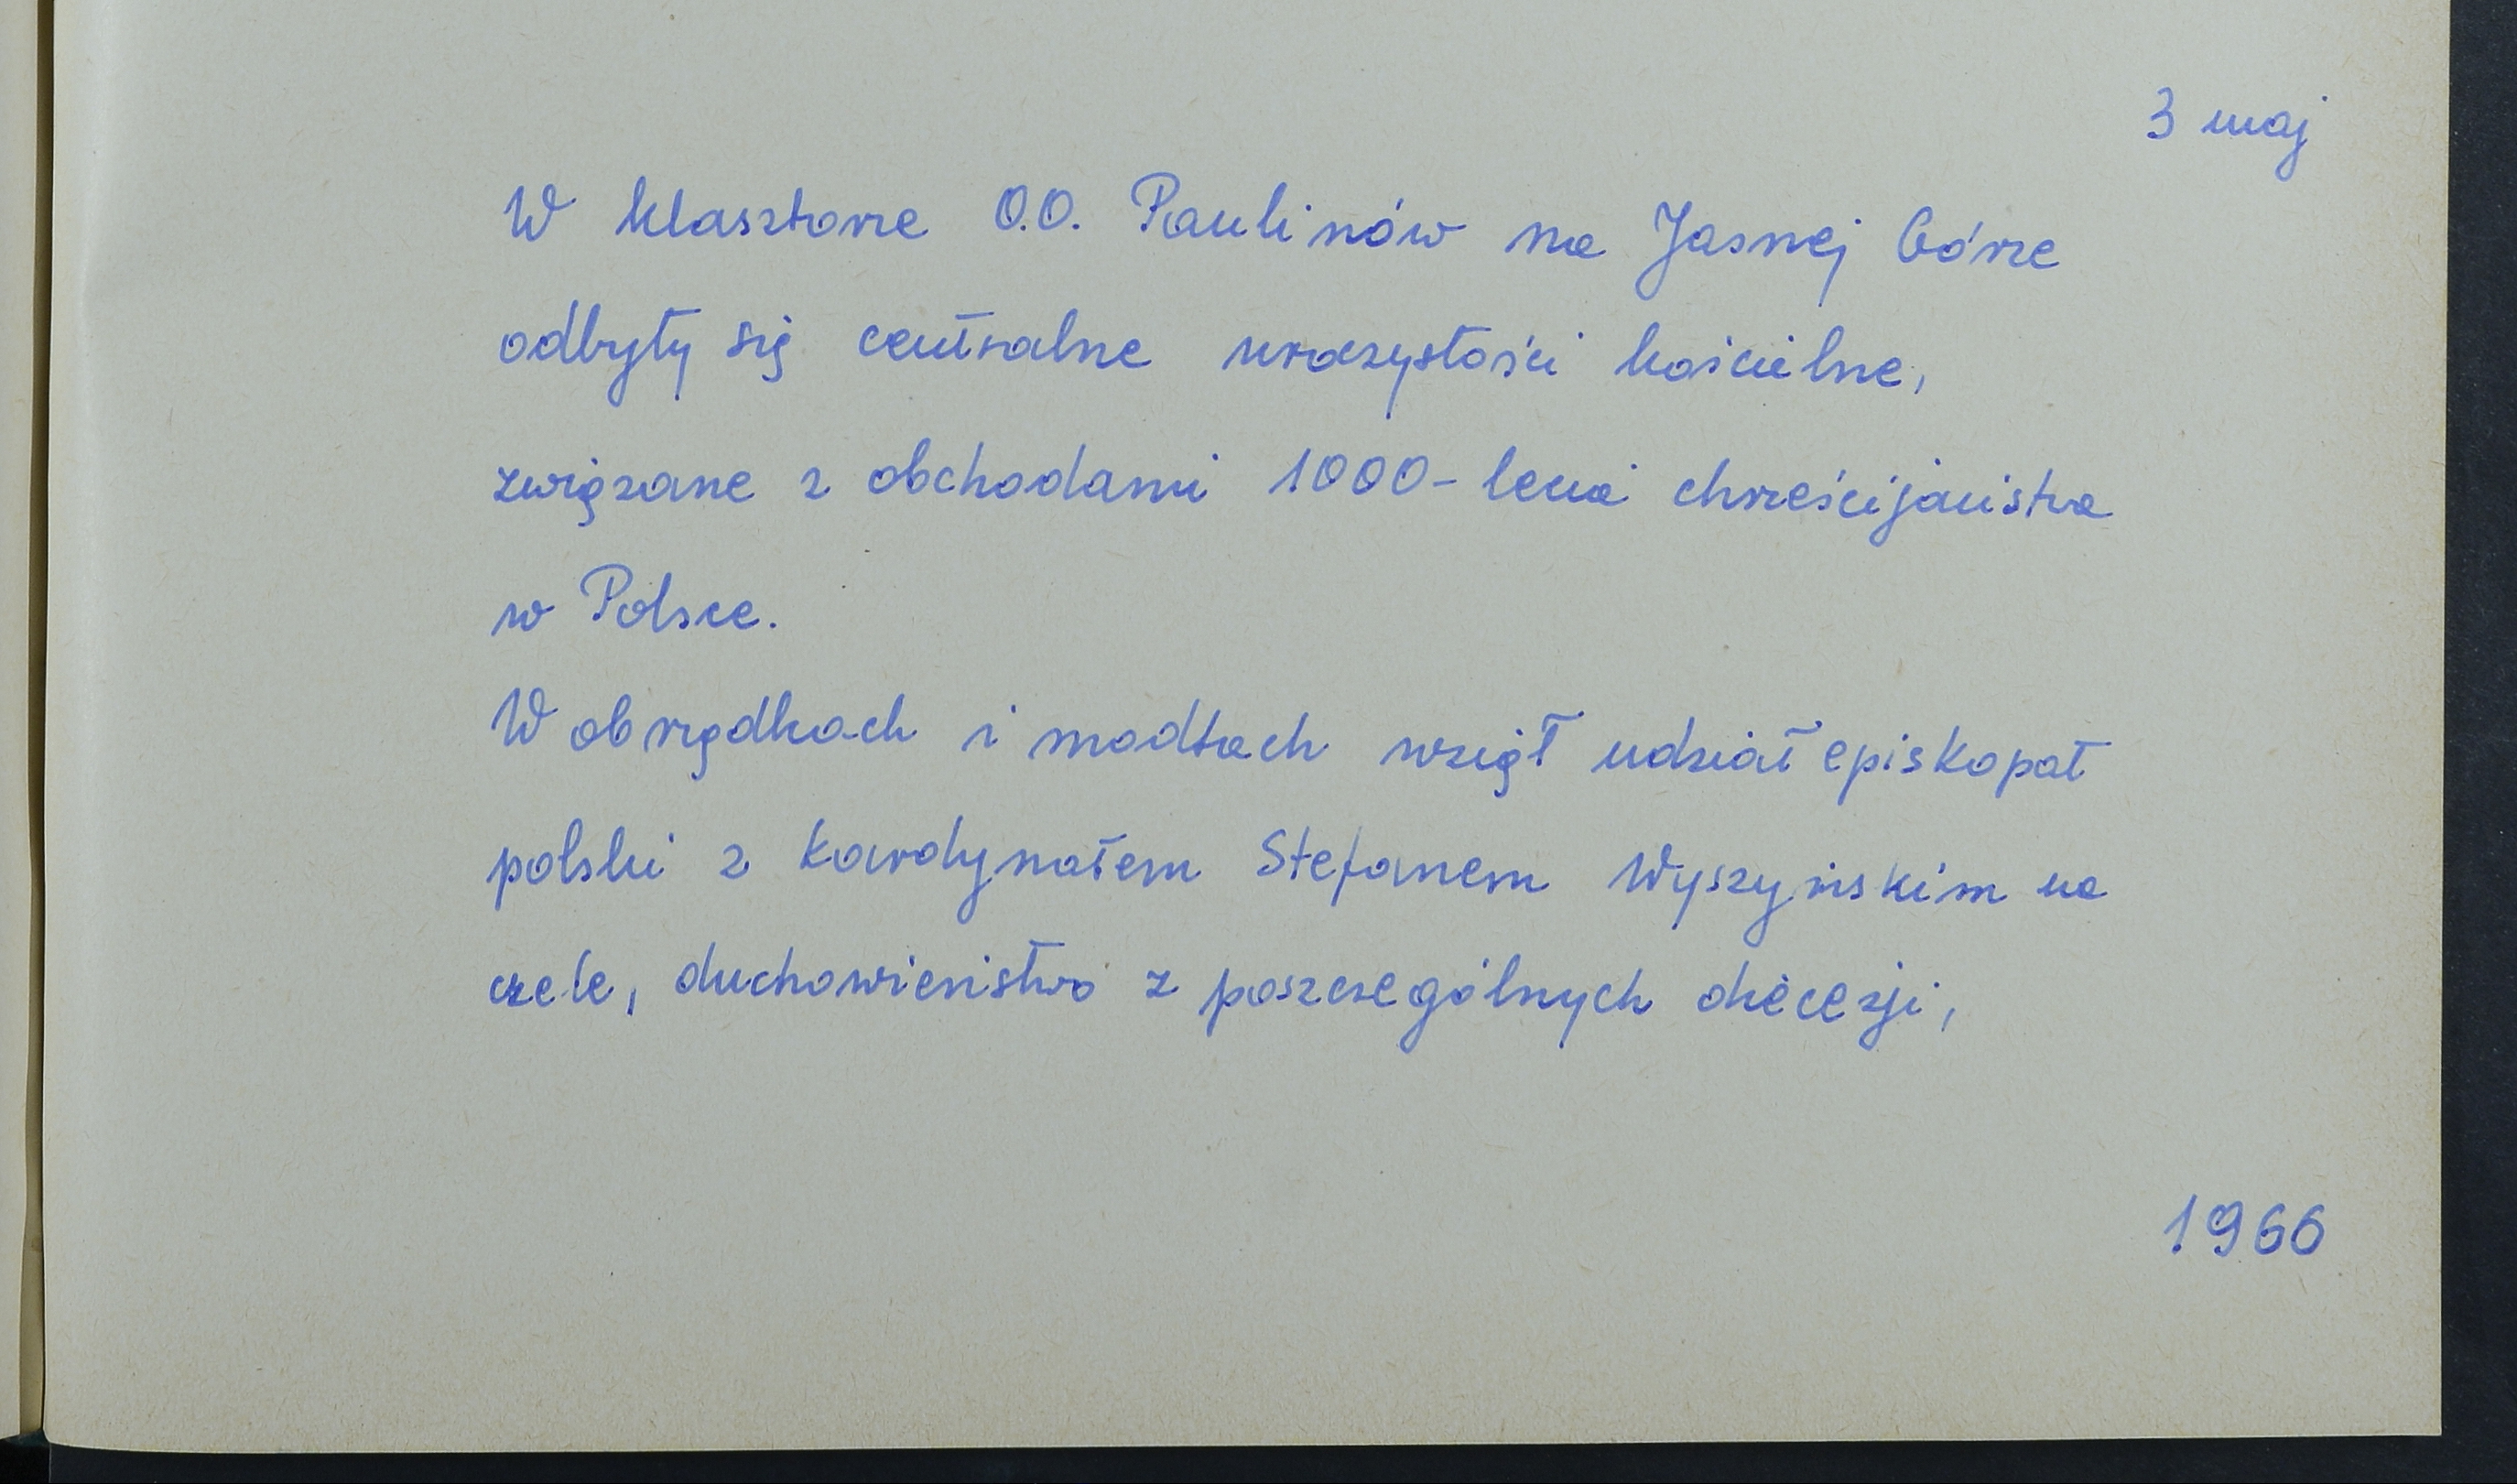 3 maj
W klasztorze O.O. Paulinów na Jasnej Górze
odbyły się centralne uroczystości kościelne,
związane z obchodami 1000-lecia chrześcijaństwa
w Polsce.
W obrządkach i modłach wziął udział episkopat
polski z kardynałem Stefanem Wyszyńskim na
czele, duchowieństwo z poszczególnych diecezji,
1966